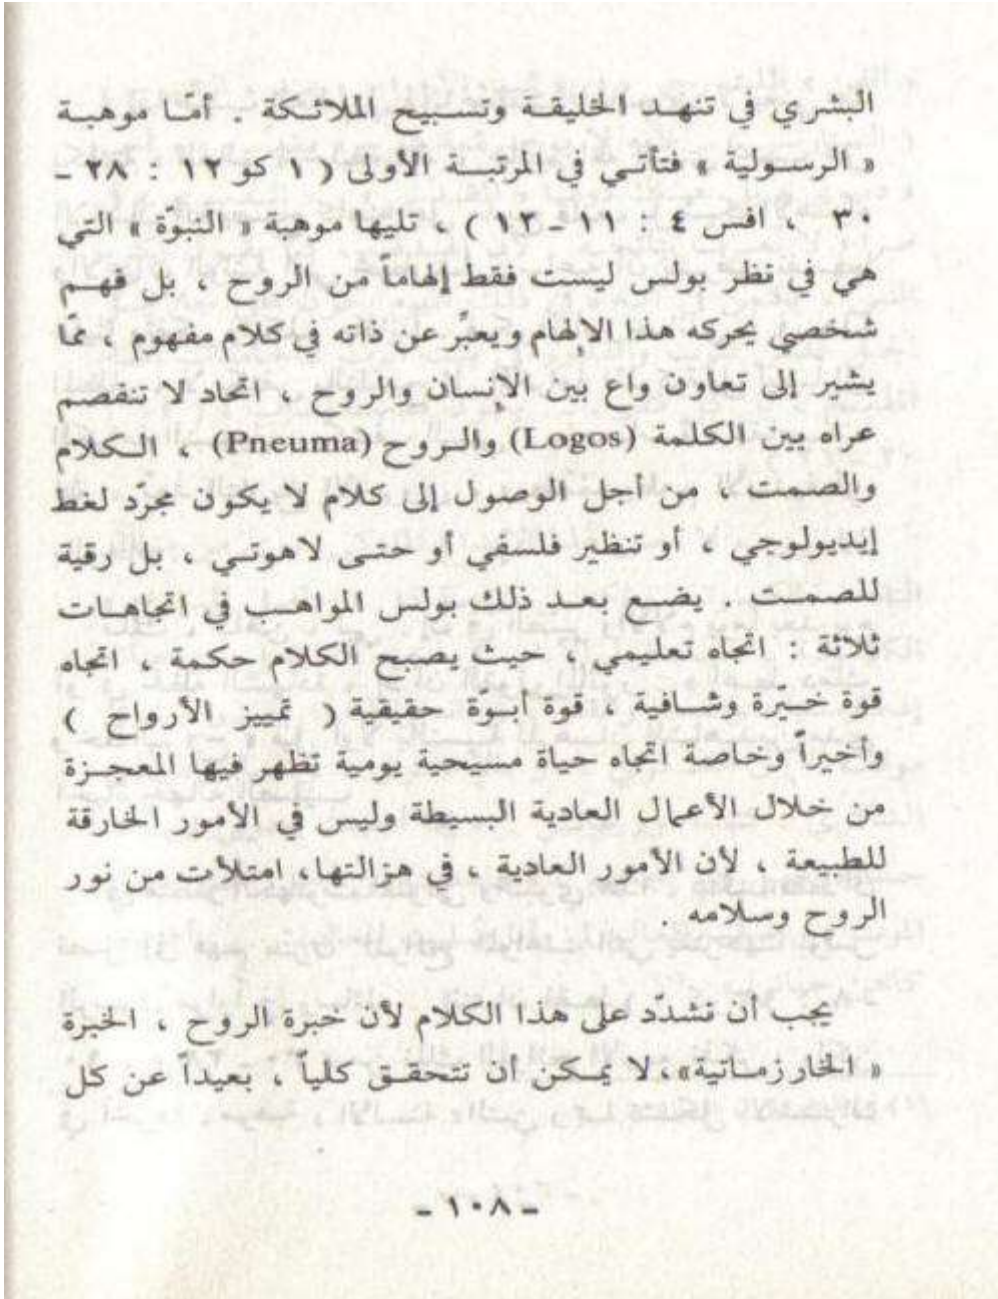 البشري في تنهد الخليقة وتسبيح الملائكة . أمّا موهبة
« الرسولية » فتأتي في المرتبة الأولى ( ١ كو ١٢ : ٢٨ ـ
٣٠ ، افس ٤ : ١١ ـ ١٢ ) ، تليها موهبة « النبوّة » التي
هي في نظر بولس ليست فقط إلهاماً من الروح ، بل فهم
شخصي يحركه هذا الإلهام ويعبِّر عن ذاته في كلام مفهوم ، ممّا
يشير إلى تعاون واع بين الإنسان والروح ، اتحاد لا تنفصم
عراه بين الكلمة (Logos) والروح (Pneuma) ، الكلام
والصمت ، من أجل الوصول إلى كلام لا يكون مجرّد لغط
إيديولوجي ، أو تنظير فلسفي أو حتى لاهوتي ، بل رقية
للصمت . يضع بعد ذلك بولس المواهب في اتجاهات
ثلاثة : اتجاه تعليمي ، حيث يصبح الكلام حكمة ، اتجاه
قوة خيّرة وشافية ، قوة أبوّة حقيقية ( تمييز الأرواح )
وأخيراً وخاصة اتجاه حياة مسيحية يومية تظهر فيها المعجزة
من خلال الأعمال العادية البسيطة وليس في الأمور الخارقة
للطبيعة ، لأن الأمور العادية ، في هزالتها، امتلأت من نور
الروح وسلامه .
يجب أن نشدّد على هذا الكلام لأن خبرة الروح ، الخبرة
« الخارزماتية»، لا يمكن أن تتحقق كلياً ، بعيداً عن كل
ـ ١٠٨ ـ